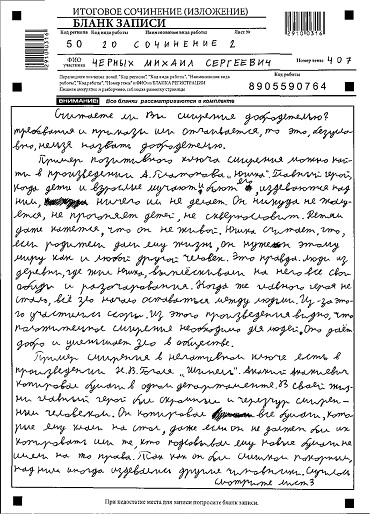 ИТОГОВОЕ СОЧИНЕНИЕ (ИЗЛОЖЕНИЕ)
БЛАНК ЗАПИСИ
Код региона Код вида работы Наименование вида работы Лист №
50 20 СОЧИНЕНИЕ 2
ФИО участника ЧЕРНЫХ МИХАИЛ СЕРГЕЕВИЧ Номер темы 407
Код работы
8905590764
ВНИМАНИЕ! Все бланки рассматриваются в комплекте
Считаете ли Вы смирение добродетелью?
требования и приказы или отчаивается, то это, безуслов
но, нельзя назвать добродетелью.
Пример позитивного ключа смирение можно най-
ти в произведении А. Платонова „Юшка". Главный герой,
когда дети и взрослые мучают и бьют его, издеваются над
ним, ничего им не делает. Он никуда не жалу-
ется, не прогоняет детей, не сквернословит. Детям
даже кажется, что он не живой. Юшка считает, что,
если родители дали ему жизнь, он нужен этому
миру как и любой другой человек. Это правда: люди из
деревни, где жил Юшка, выплёскивали на него все свои
обиды и разочарования. Когда же главного героя не
стало, всё зло начало оставаться между людьми. Из-за это-
го участились ссоры. Из этого произведения видно, что
положительное смирение необходимо для людей. Оно даёт
добро и уменьшает зло в обществе.
Пример смирения в негативном ключе есть в
произведении Н.В. Гоголя „Шинель". Акакий Акакиевич
копировал бумаги в одном департаменте. В своей жиз-
ни главный герой был скромным и чересчур смирен-
ным человеком. Он копировал все бумаги, кото-
рые ему клали на стол, даже если он не должен был их
копировать или те, кто подсовывал ему новые бумаги не
имели на то права. Так как он был слишком покорным,
над ним иногда издевались другие чиновники.
смотрите лист 3
При недостатке места для записи попросите бланк записи.